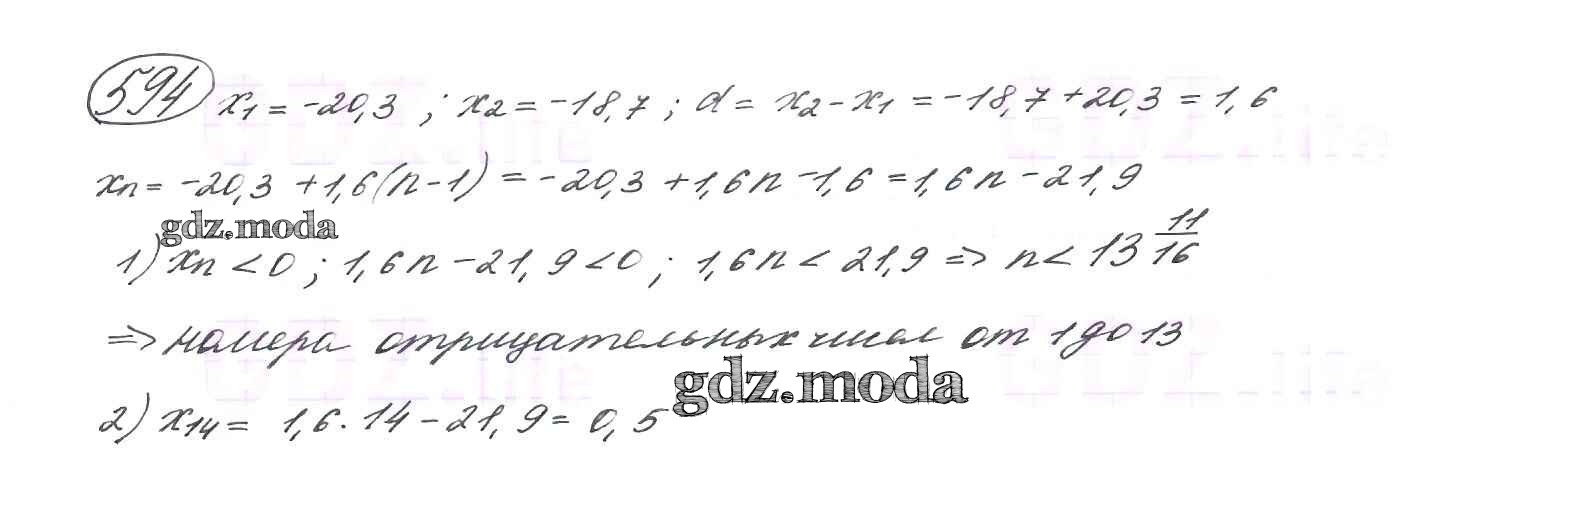 594 x₁ = -20,3 ; x₂ = -18,7 ; d = x₂ - x₁ = -18,7 + 20,3 = 1,6
xₙ = -20,3 + 1,6(n-1) = -20,3 + 1,6n - 1,6 = 1,6n - 21,9
gdz.moda
1) xₙ < 0 ; 1,6n - 21,9 < 0 ; 1,6n < 21,9 => n < 13 11/16
=> номера отрицательных чисел от 1 до 13
gdz.moda
2) x₁₄ = 1,6 · 14 - 21,9 = 0,5